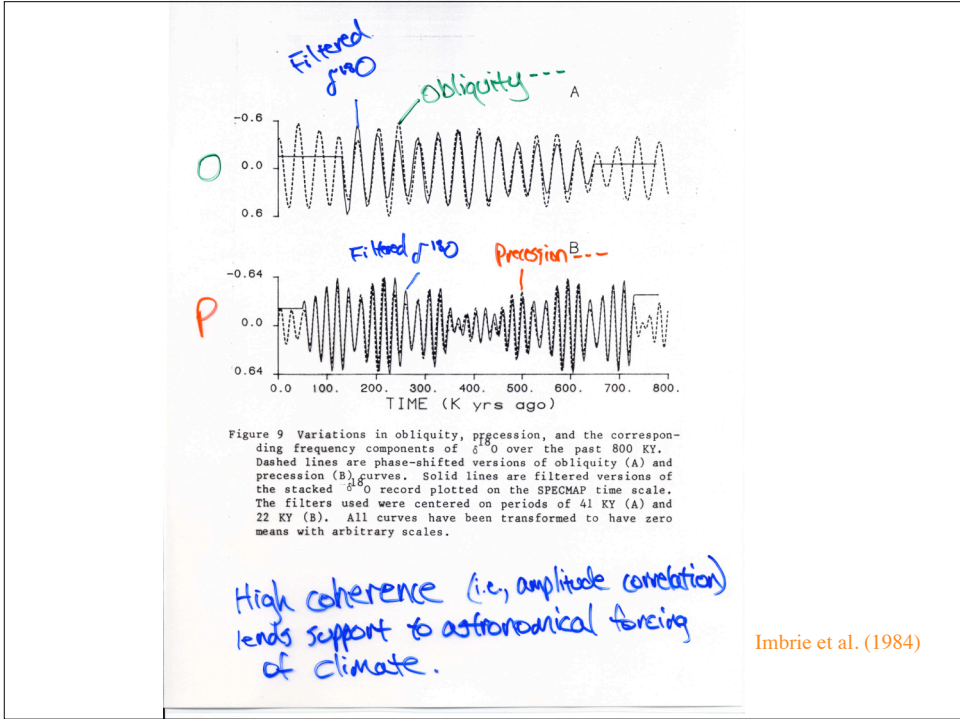 Filtered
δ18O
Obliquity ---
A
-0.6
O
0.0
0.6
Filtered δ18O
Precession ---
B
-0.64
P
0.0
0.64
0.0 100. 200. 300. 400. 500. 600. 700. 800.
TIME (K yrs ago)
Figure 9 Variations in obliquity, precession, and the correspon-
ding frequency components of δ18O over the past 800 KY.
Dashed lines are phase-shifted versions of obliquity (A) and
precession (B) curves. Solid lines are filtered versions of
the stacked δ18O record plotted on the SPECMAP time scale.
The filters used were centered on periods of 41 KY (A) and
22 KY (B). All curves have been transformed to have zero
means with arbitrary scales.
High coherence (i.e., amplitude correlation)
lends support to astronomical forcing
of climate.
Imbrie et al. (1984)